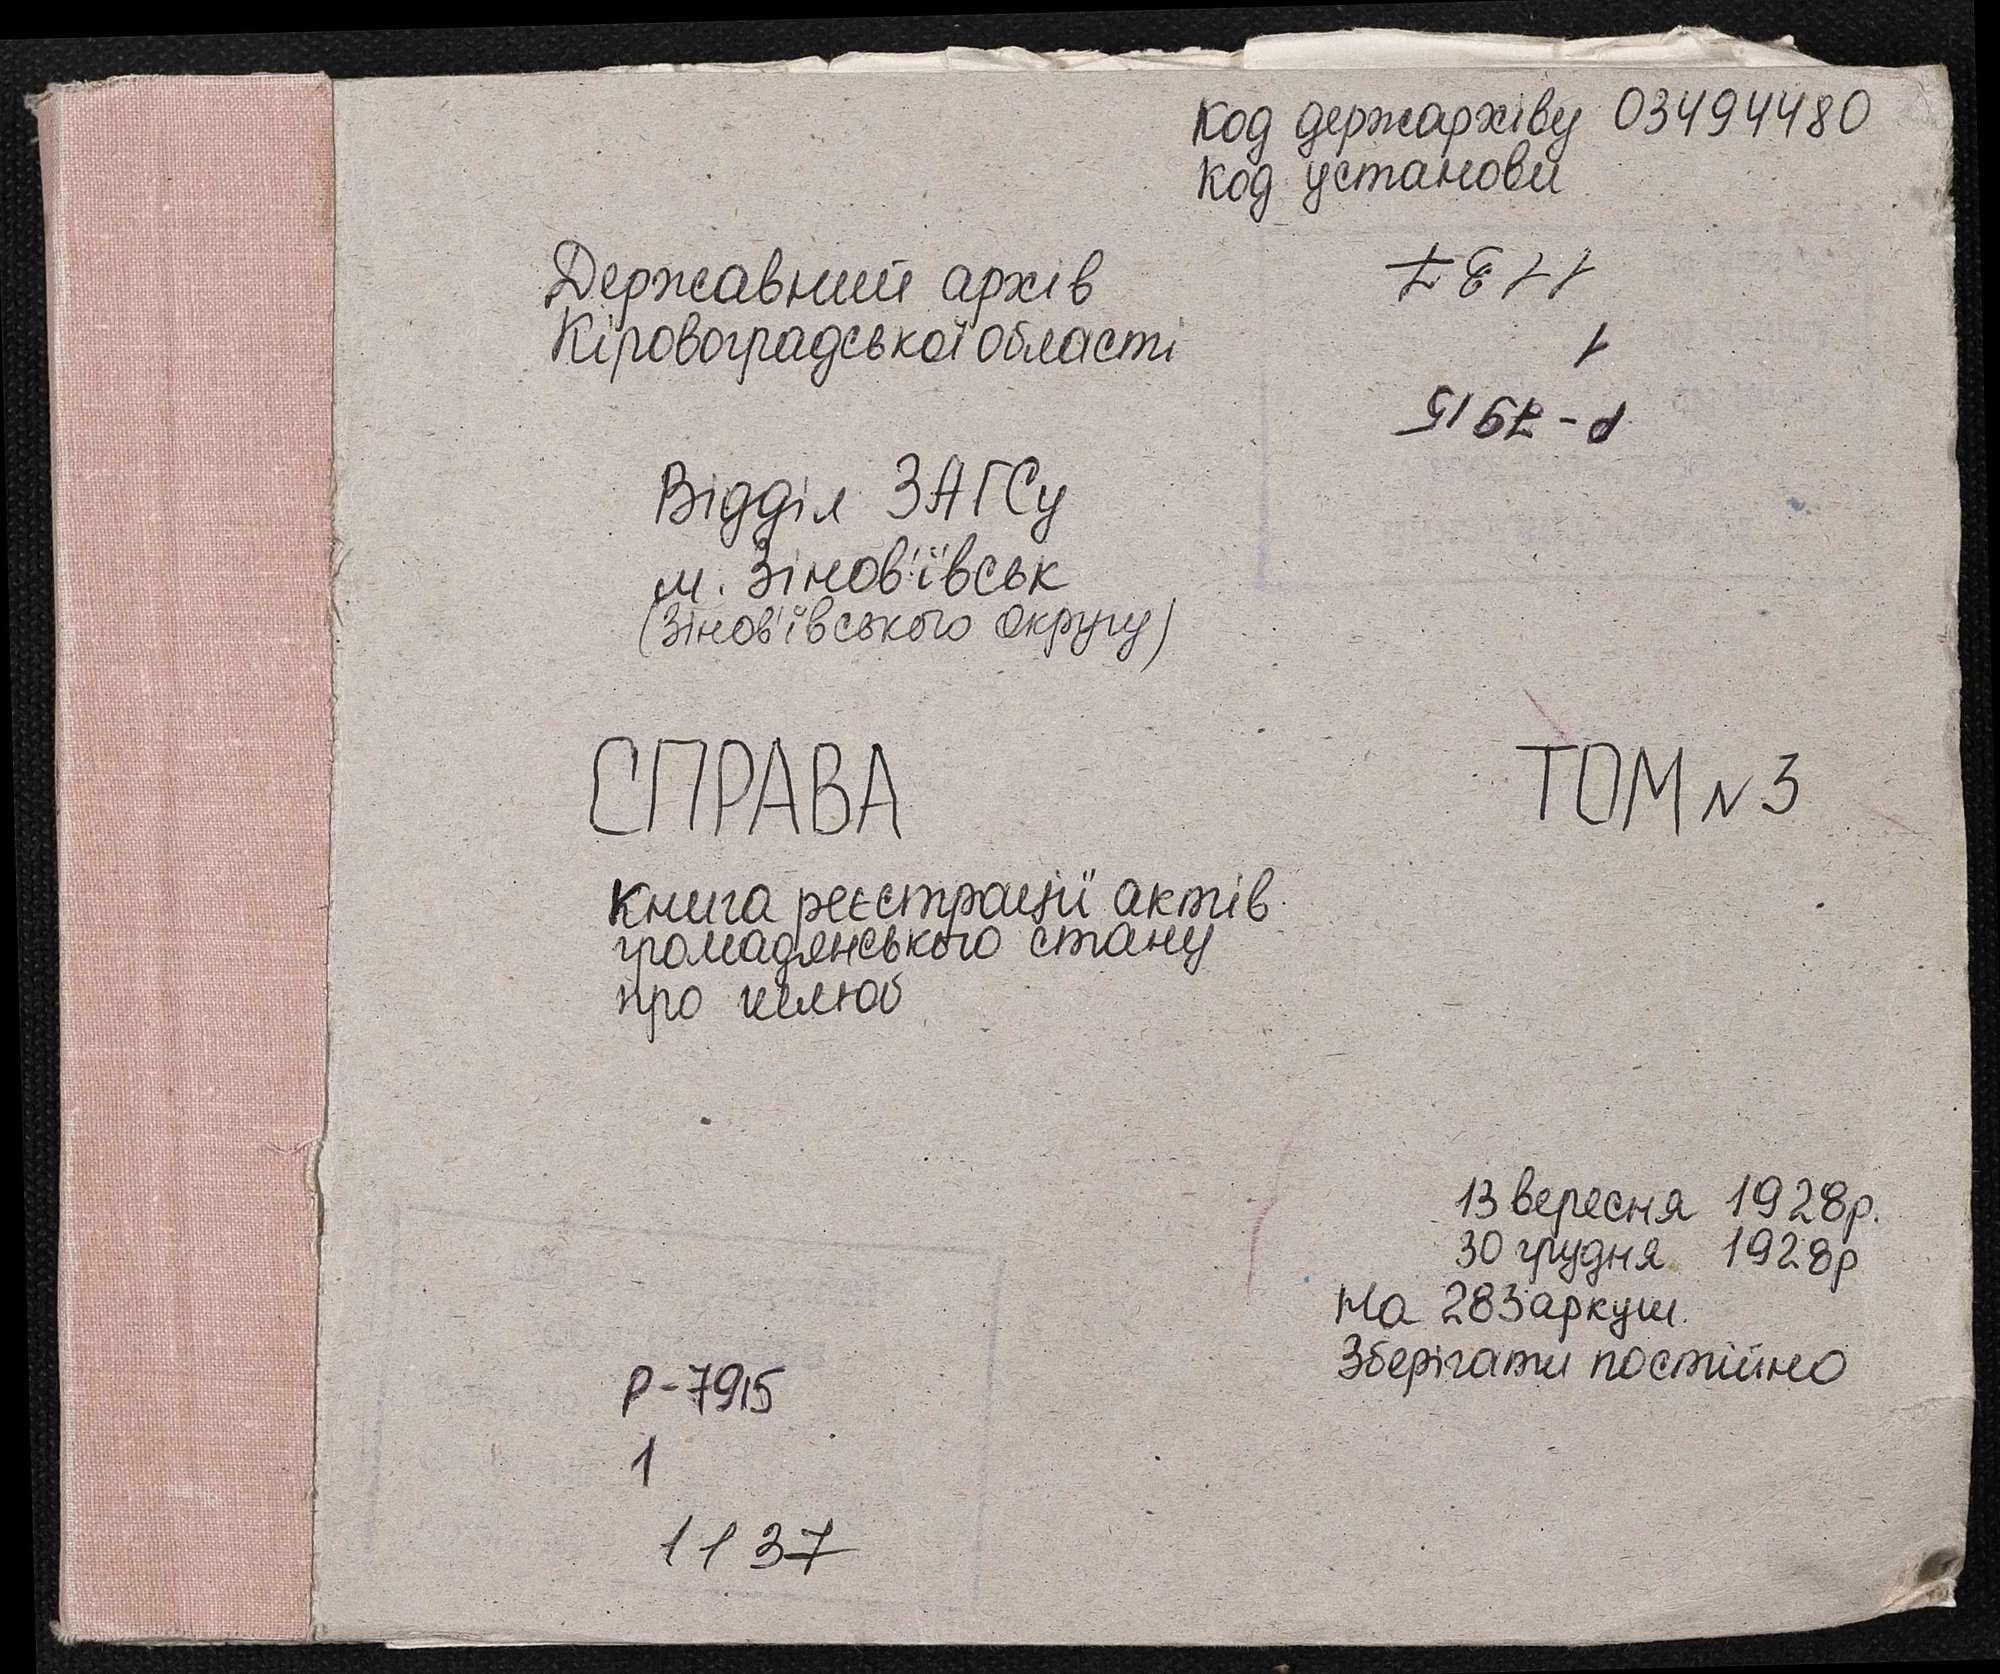 Код держархіву 03494480
Код установи
Державний архів
Кіровоградської області
1137
1
Р-7915
Відділ ЗАГСу
м. Зінов'ївськ
(Зінов'ївського округу)
СПРАВА
ТОМ N 3
Книга реєстрації актів
громадянського стану
про шлюб
13 вересня 1928р.
30 грудня 1928р
На 283 аркуш.
Зберігати постійно
Р-7915
1
1137